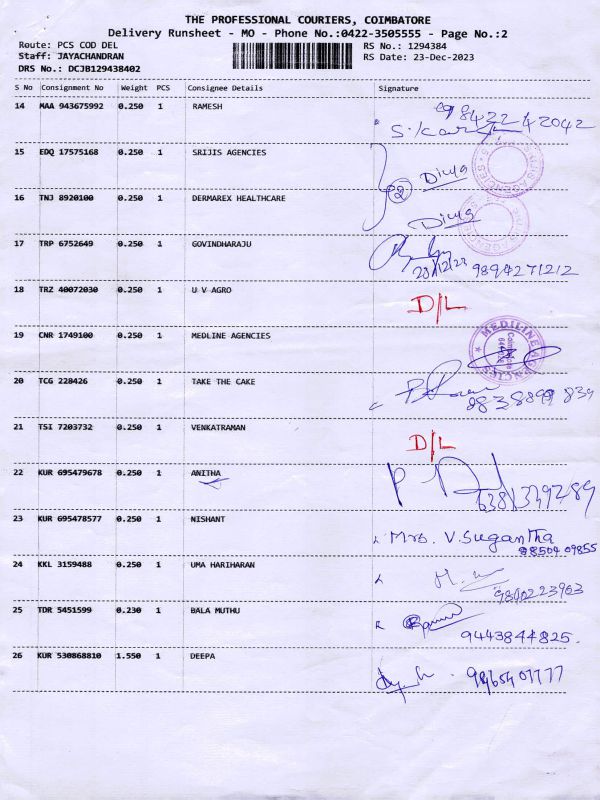 THE PROFESSIONAL COURIERS, COIMBATORE
Delivery Runsheet - MO - Phone No.:0422-3505555 - Page No.:2
Route: PCS COD DEL
RS No.: 1294384
Staff: JAYACHANDRAN
RS Date: 23-Dec-2023
DRS No.: DCJB129438402
S No Consignment No Weight PCS Consignee Details Signature
14 MAA 943675992 0.250 1 RAMESH
15 EDQ 17575168 0.250 1 SRIJIS AGENCIES
2 Divya
16 TNJ 8920100 0.250 1 DERMAREX HEALTHCARE
Divya
17 TRP 6752649 0.250 1 GOVINDHARAJU
23/12/23 9894271212
18 TRZ 40072030 0.250 1 U V AGRO D/L
19 CNR 1749100 0.250 1 MEDLINE AGENCIES
MEDILINE AGENCIES
20 TCG 228426 0.250 1 TAKE THE CAKE
21 TSI 7203732 0.250 1 VENKATRAMAN D/L
22 KUR 695479678 0.250 1 ANITHA
23 KUR 695478577 0.250 1 NISHANT Mrs. V. Sugantha
98504 09855
24 KKL 3159488 0.250 1 UMA HARIHARAN
25 TDR 5451599 0.230 1 BALA MUTHU
9443844825.
26 KUR 530868810 1.550 1 DEEPA